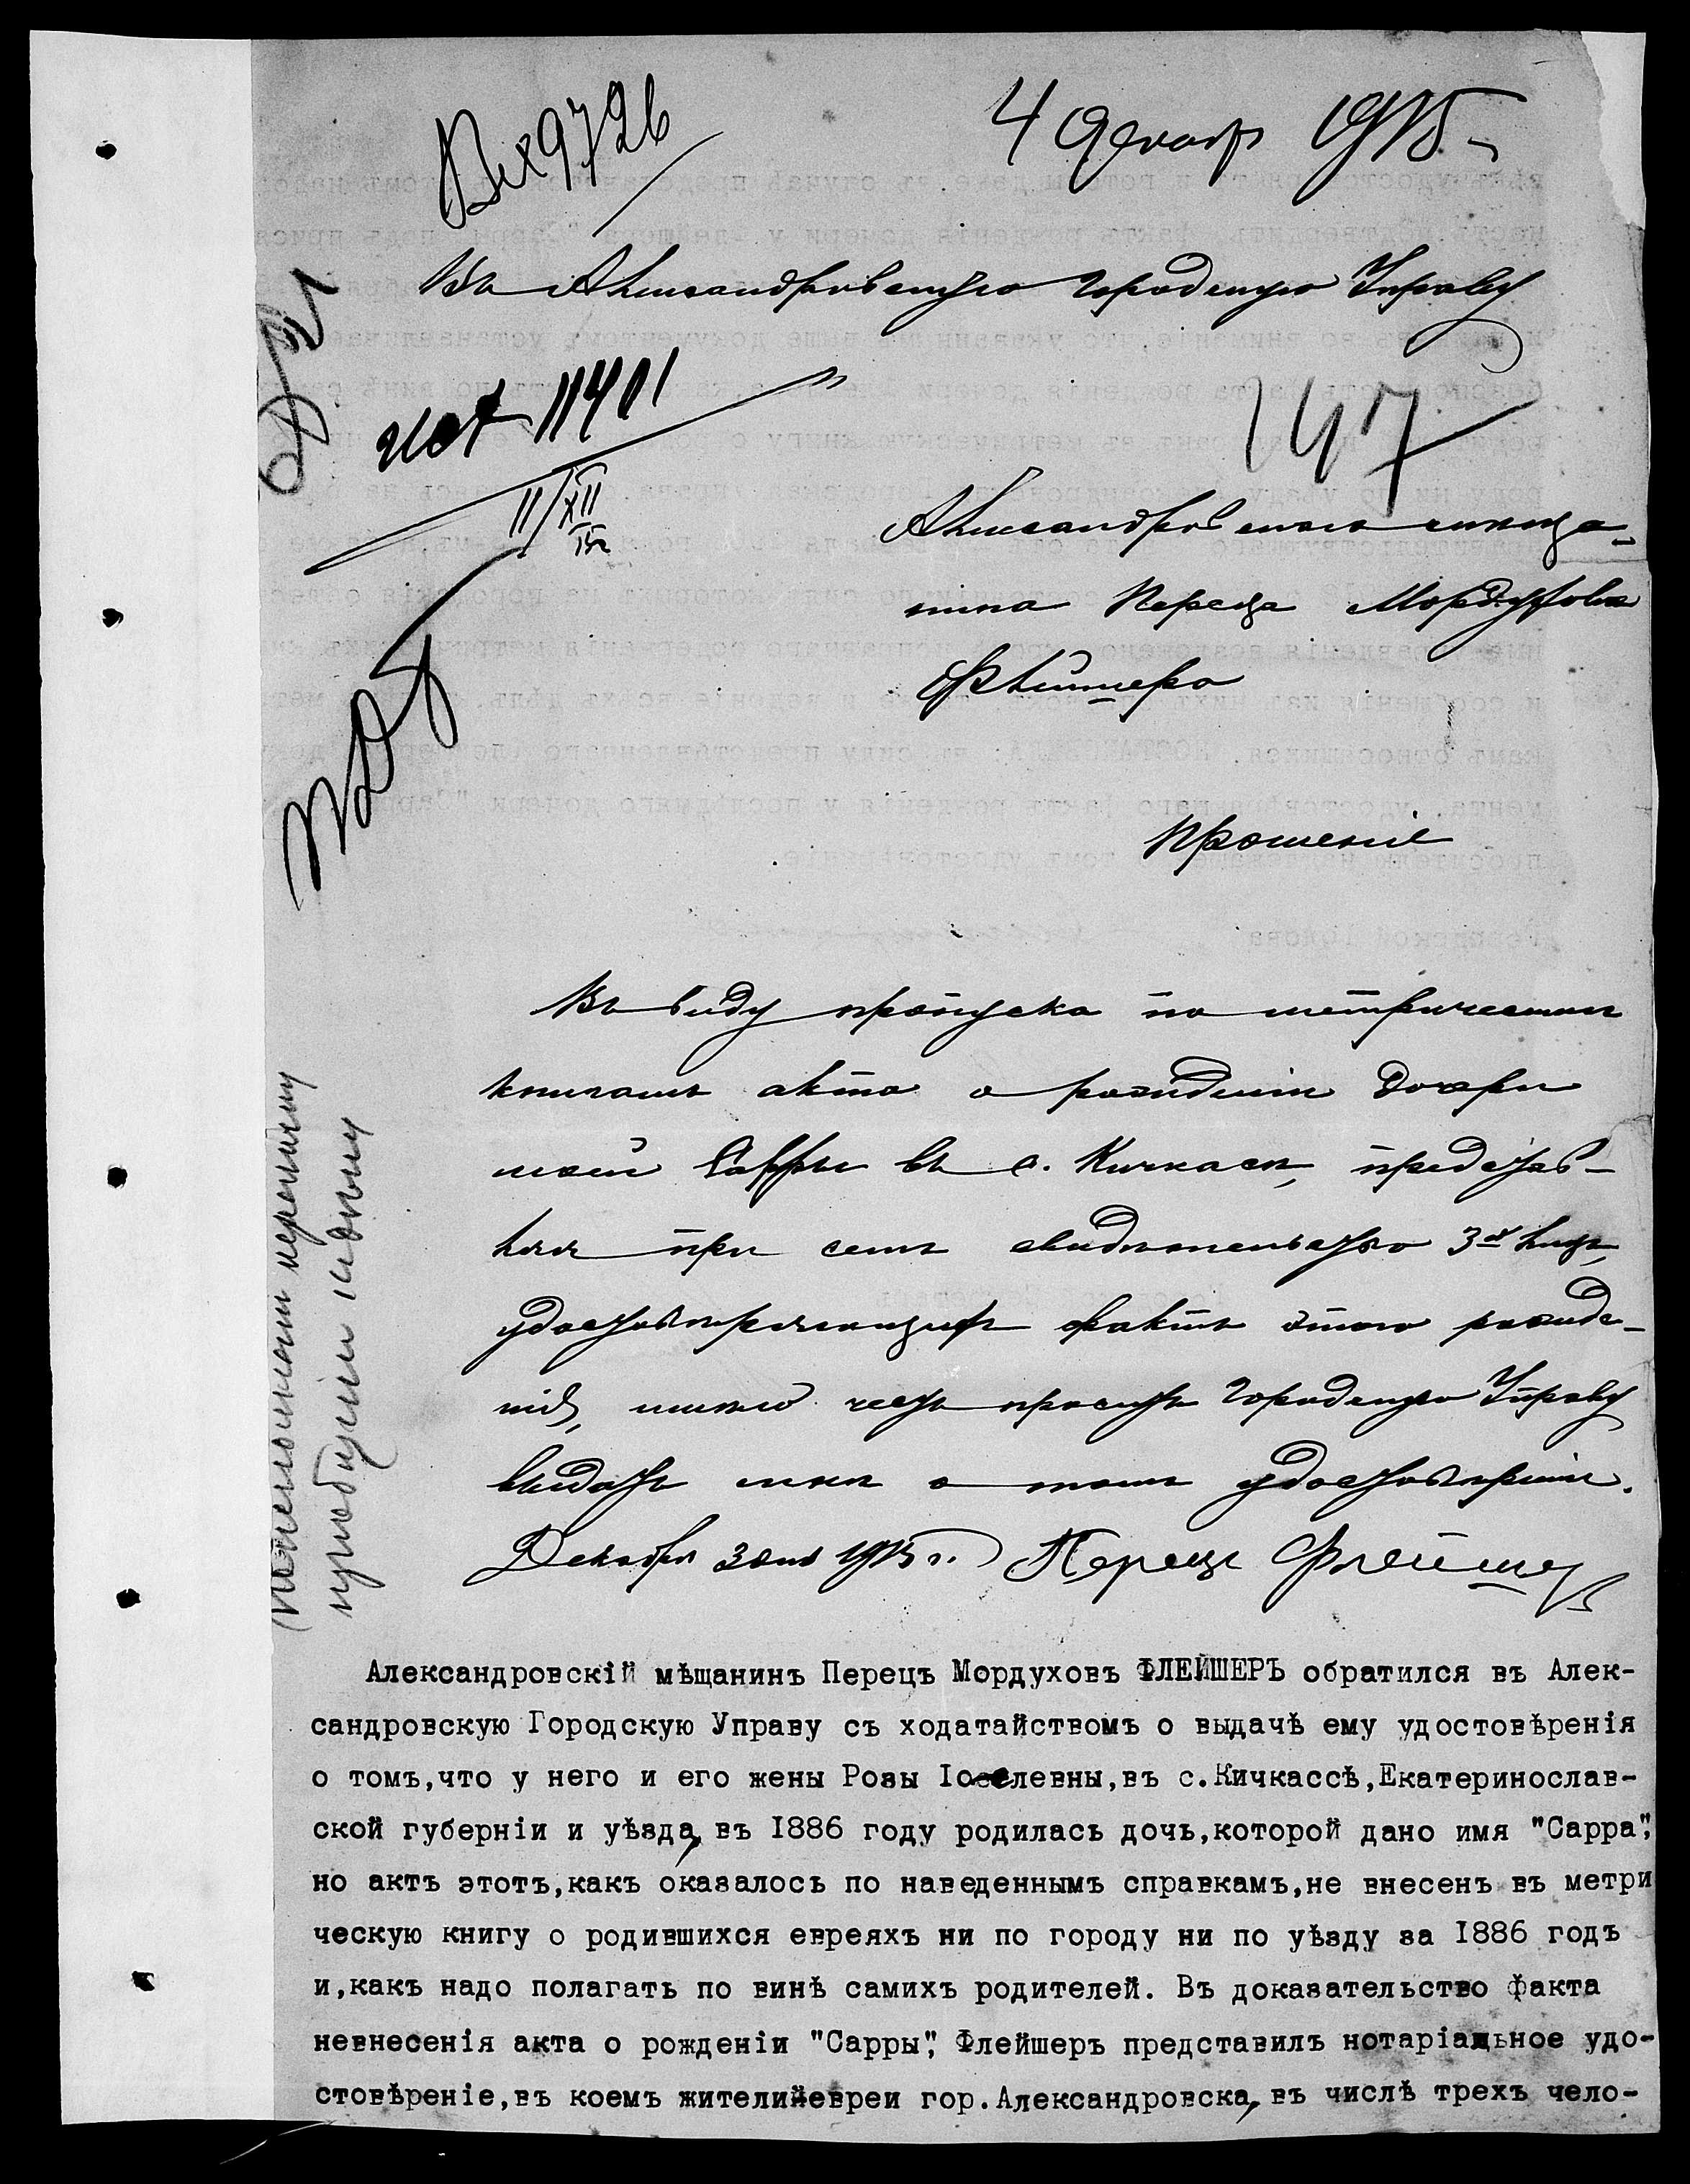 Вх 9726
4 Декабр 1915
Въ Александровскую Городскую Управу
исх 11401
11/XII
15г
147
Александровскаго мѣща-
нина Переца Мордухова
Флейшера
Прошеніе
Въ виду пропуска по метрическимъ
книгамъ акта о рожденіи дочери
моей Сарры въ с. Кичкасѣ, представ-
ляя при семъ свидѣтельство 3-х лицъ,
удостовѣряющихъ фактъ этого рожде-
нія, имѣю честь просить Городскую Управу
выдать мнѣ о томъ удостовѣреніе.
Декабря 3 дня 1915 г. Перецъ Флейшер
Александровскій мѣщанинъ Перецъ Мордуховъ ФЛЕЙШЕРЪ обратился въ Алек-
сандровскую Городскую Управу съ ходатайствомъ о выдачѣ ему удостовѣренія
о томъ,что у него и его жены Розы Іоселевны,въ с.Кичкассѣ,Екатеринослав-
ской губерніи и уѣзда, въ 1886 году родилась дочь,которой дано имя "Сарра",
но актъ этотъ,какъ оказалось по наведеннымъ справкамъ,не внесенъ въ метри
ческую книгу о родившихся евреяхъ ни по городу ни по уѣзду за 1886 годъ
и,какъ надо полагать по винѣ самихъ родителей. Въ доказательство факта
невнесенія акта о рожденіи "Сарры", Флейшеръ представилъ нотаріальное удо-
стовѣреніе,въ коемъ жители евреи гор.Александровска, въ числѣ трехъ чело-